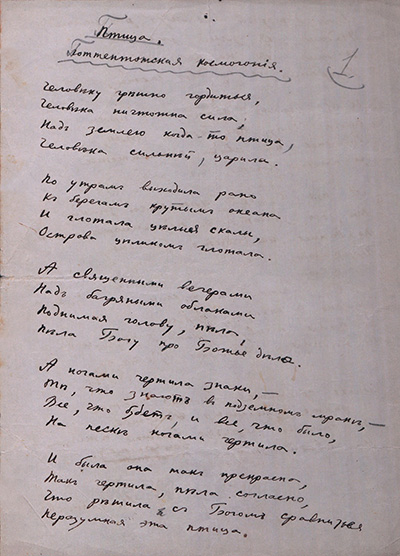 Птица.
Готтентотская космогонія.
1
Человѣку грѣшно гордиться,
Человѣка ничтожна сила,
Надъ землею когда-то птица,
Человѣка сильнѣй, царила.
По утрамъ выходила рано
Къ берегамъ крутымъ океана
И глотала цѣлыя скалы,
Острова цѣликомъ глотала.
А священными вечерами
Надъ багряными облаками
Поднимая голову, пѣла,
Пѣла Богу про Божье дѣло.
А ногами чертила знаки, —
Тѣ, что знаютъ въ подземномъ мракѣ, —
Все, что будетъ, и все, что было,
На пескѣ ногами чертила.
И была она такъ прекрасна,
Такъ чертила, пѣла согласно,
Что рѣшила съ Богомъ сравниться
Неразумная эта птица.